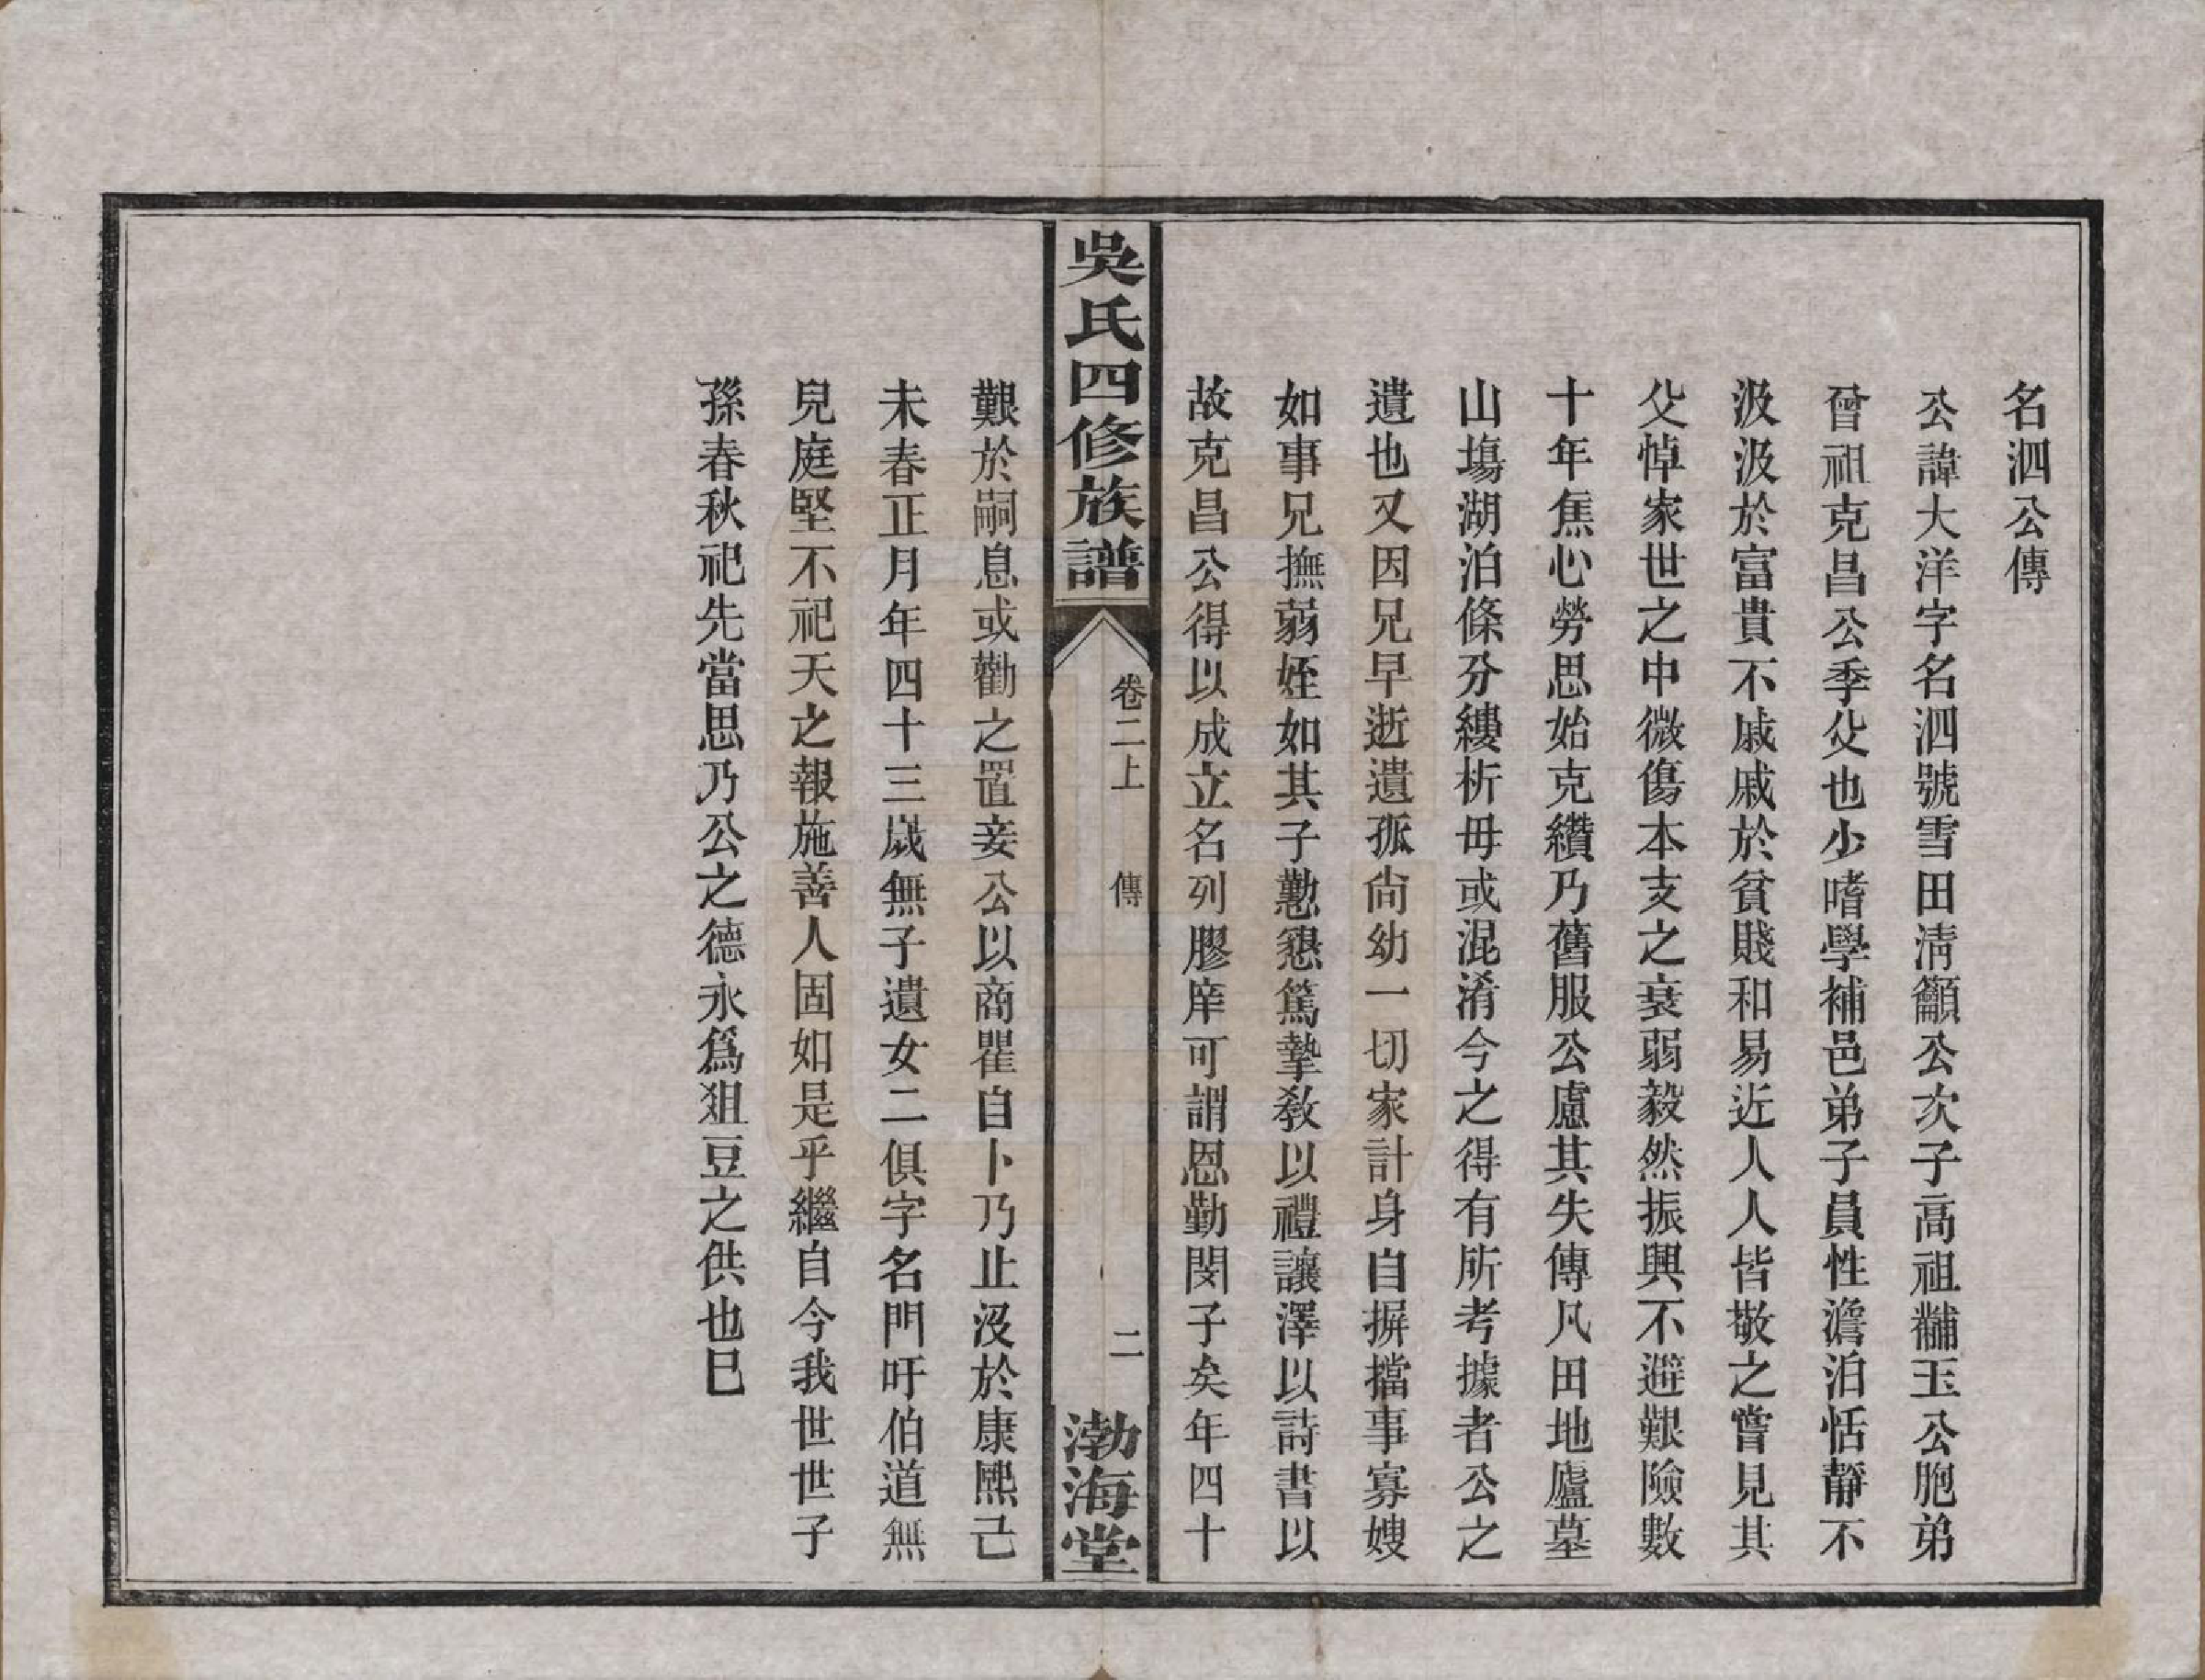 名泗公傳
公諱大洋字名泗號雪田淸籲公次子高祖黼玉公胞弟
曾祖克昌公季父也少嗜學補邑弟子員性澹泊恬靜不
汲汲於富貴不戚戚於貧賤和易近人人皆敬之嘗見其
父悼家世之中微傷本支之衰弱毅然振興不避艱險數
十年焦心勞思始克纘乃舊服公慮其失傳凡田地廬墓
山塲湖泊條分縷析毋或混淆今之得有所考據者公之
遺也又因兄早逝遺孤尙幼一切家計身自摒擋事寡嫂
如事兄撫弱姪如其子懃懇篤摯教以禮讓澤以詩書以
故克昌公得以成立名列膠庠可謂恩勤閔子矣年四十
吳氏四修族譜
卷二上
傳
二
渤海堂
艱於嗣息或勸之置妾公以商瞿自卜乃止沒於康熙己
未春正月年四十三歲無子遺女二俱字名門吁伯道無
兒庭堅不祀天之報施善人固如是乎繼自今我世世子
孫春秋祀先當思乃公之德永爲俎豆之供也巳